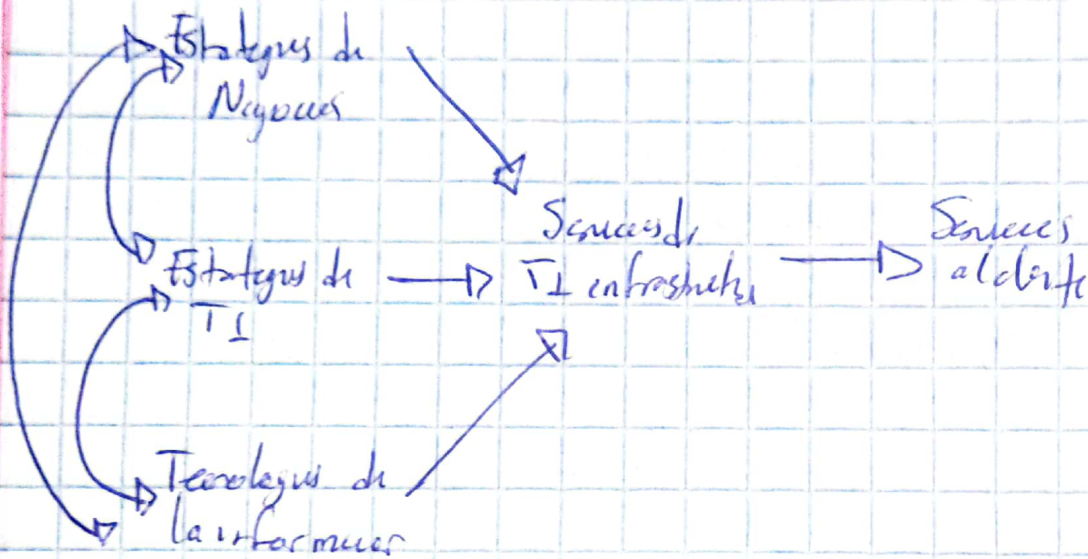 Estrategias de
Negocios
Estrategias de
TI
Tecnologias de
la informacion
Servicios de
TI infraestructura
Servicios
al cliente